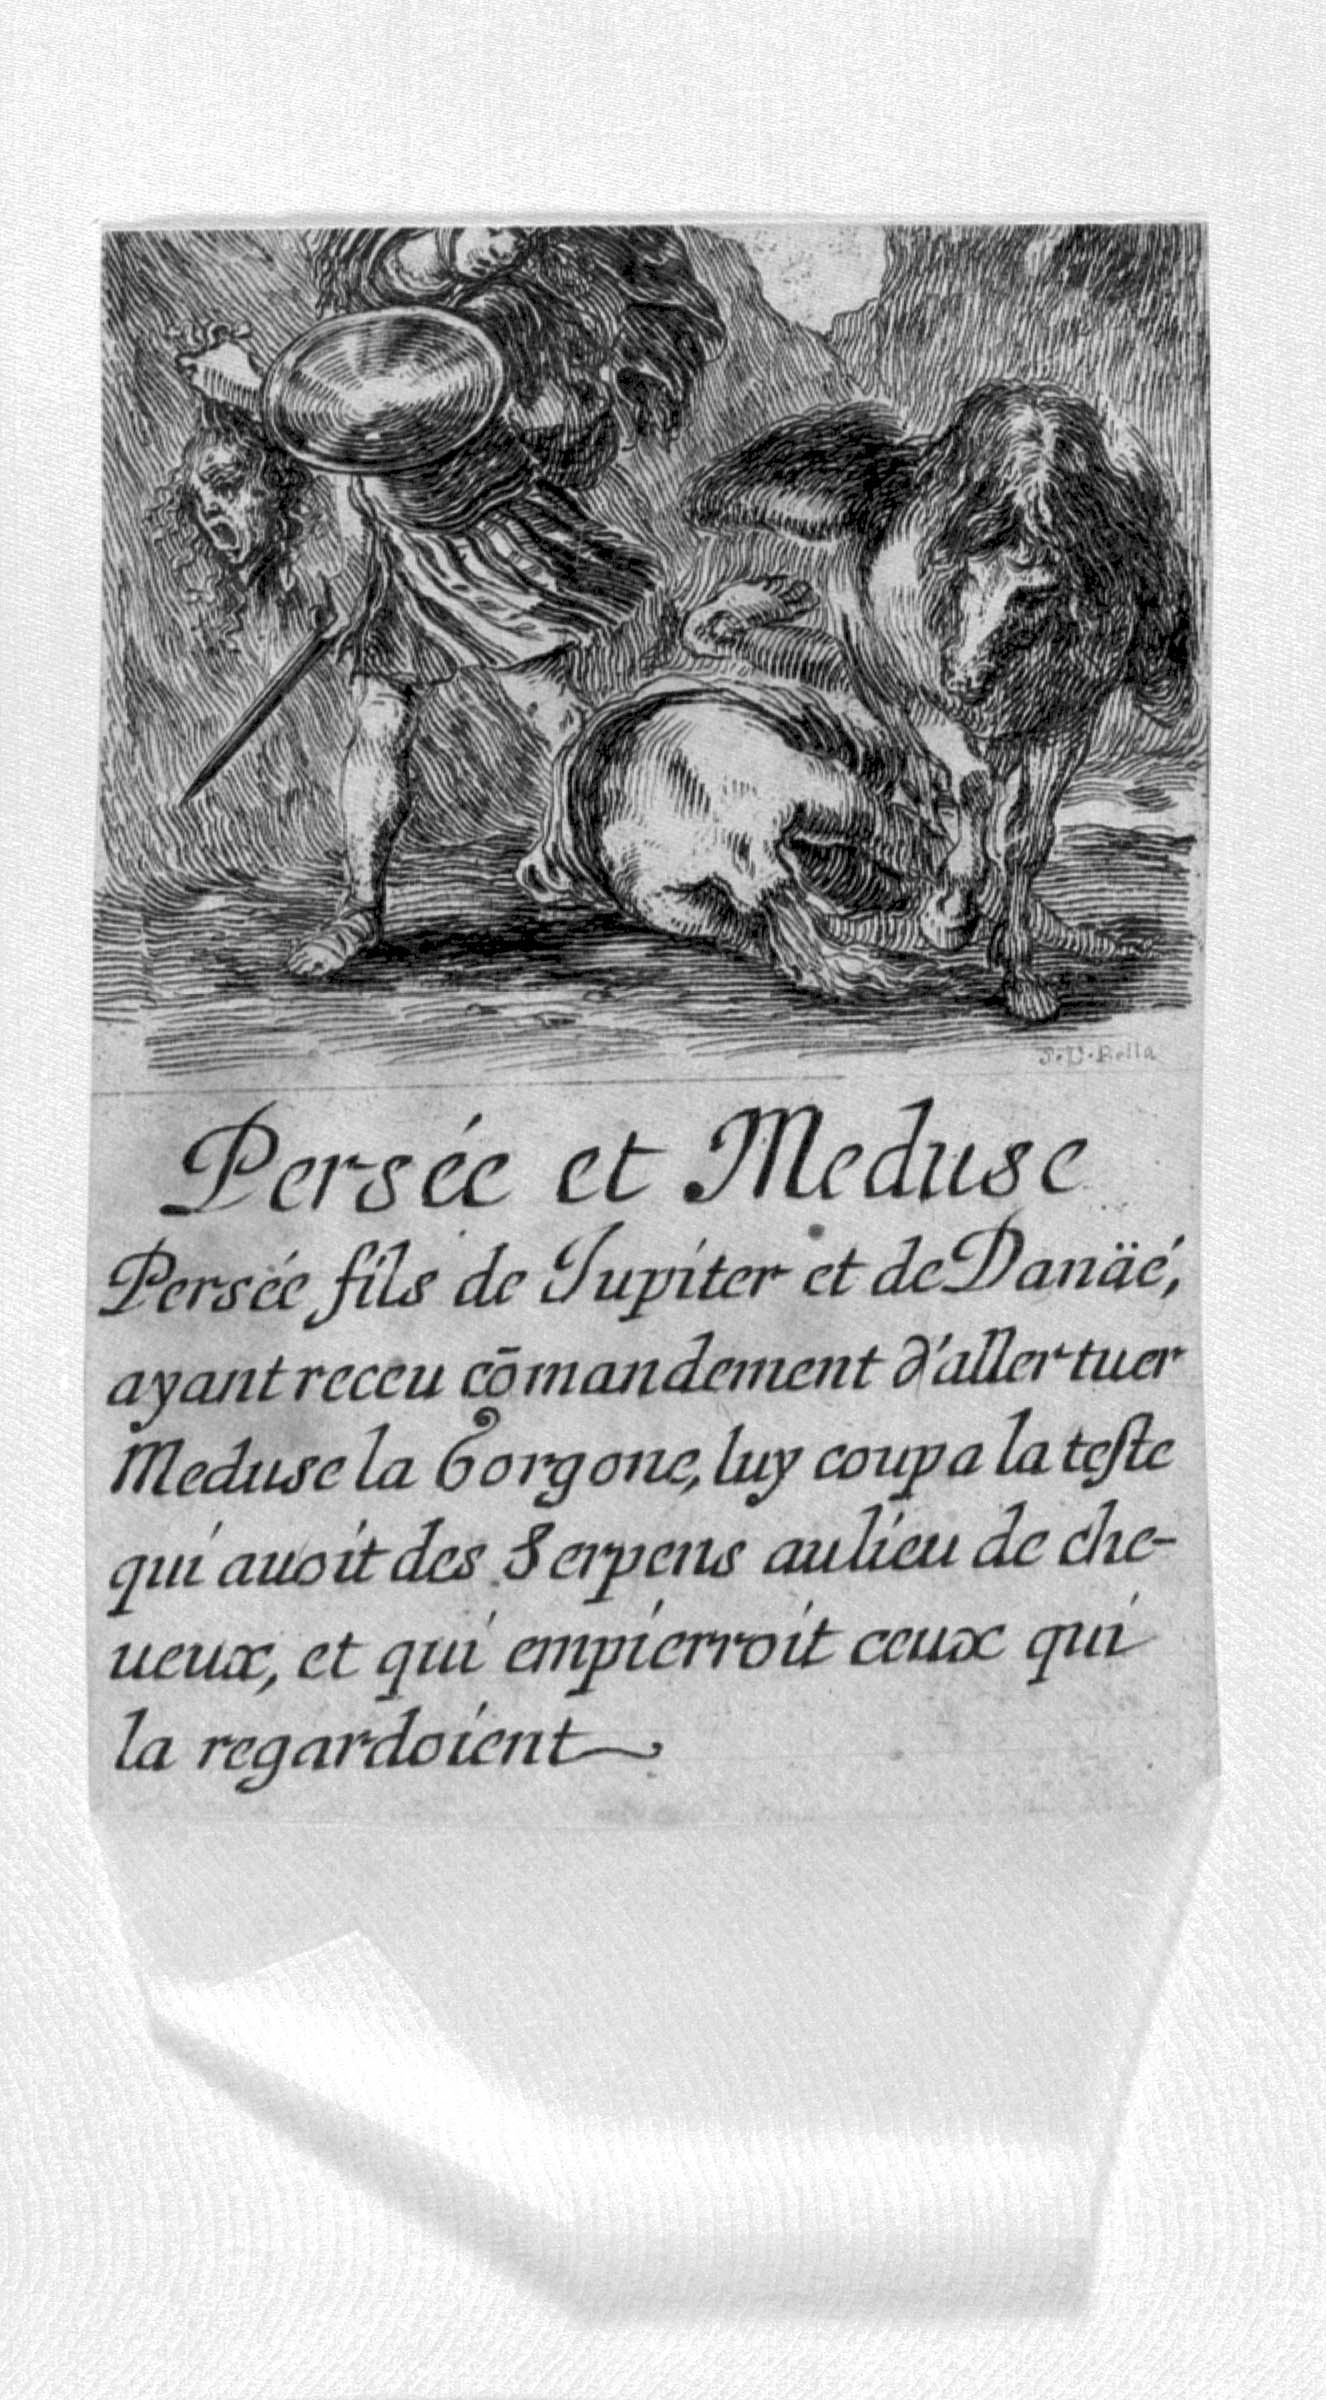 S.D.Bella
Persée et Meduse
Persée fils de Jupiter et de Danäé,
ayant receu cōmandement d'aller tuer
Meduse la Gorgone, luy coupa la teste
qui auoit des Serpens au lieu de che-
ueux, et qui empierroit ceux qui
la regardoient